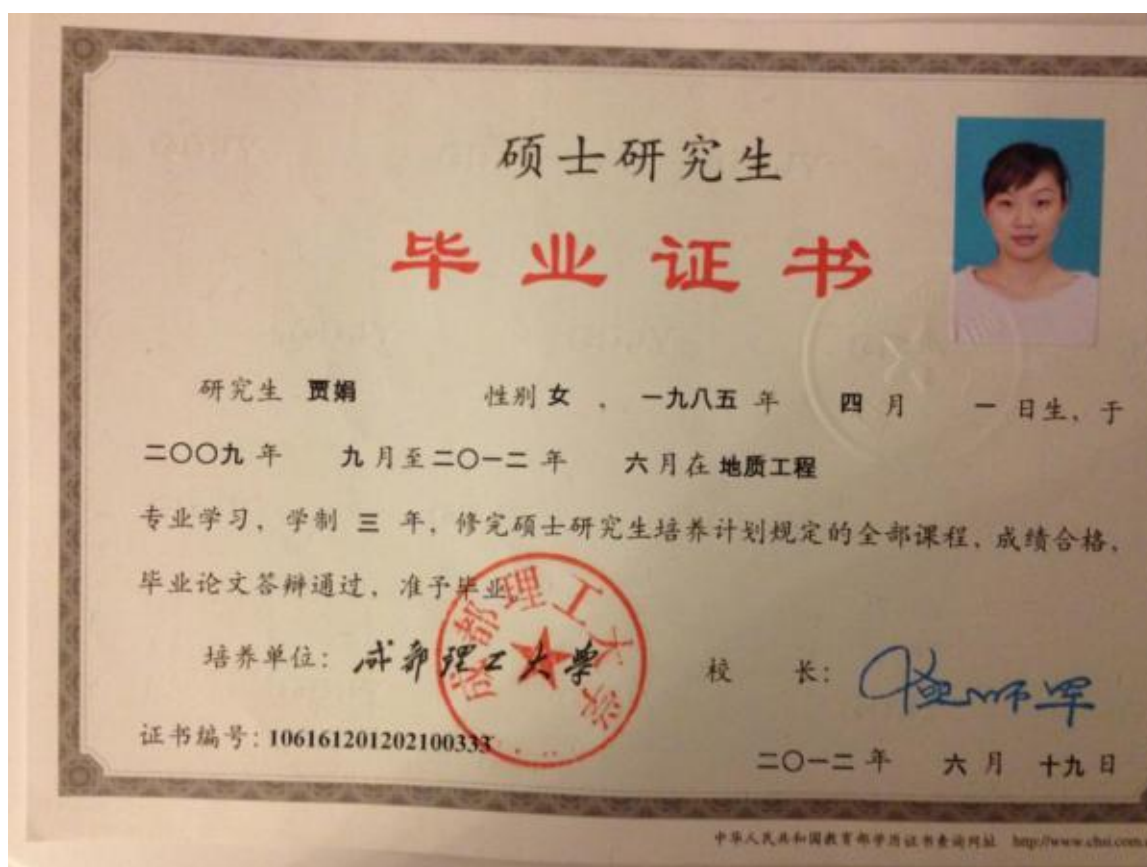 硕士研究生
毕业证书
研究生 贾娟 性别 女 ， 一九八五 年 四 月 一 日生，于
二〇〇九 年 九 月至 二〇一二 年 六 月在 地质工程
专业学习，学制 三 年，修完硕士研究生培养计划规定的全部课程，成绩合格，
毕业论文答辩通过，准予毕业。
成都理工大学
培养单位：成都理工大学 校 长：
证书编号：106161201202100333
二〇一二 年 六 月 十九 日
中华人民共和国教育部学历证书查询网址 http://www.chsi.com